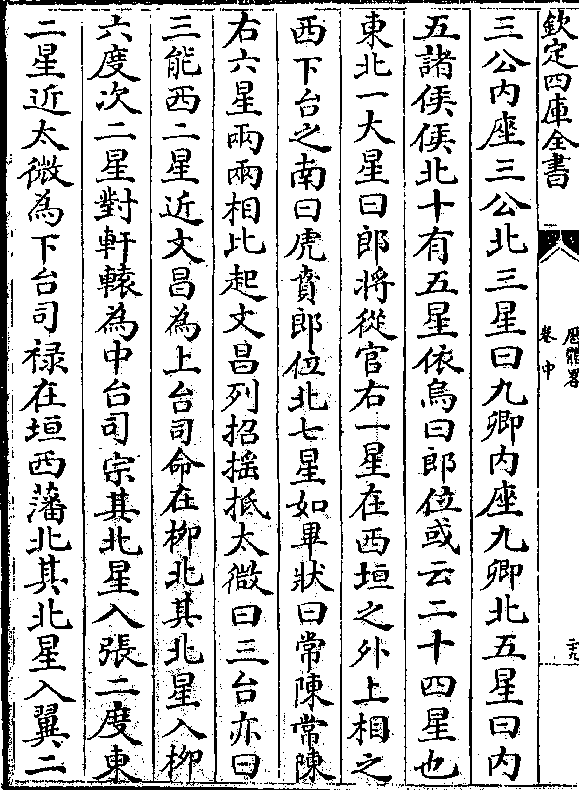 欽定四庫全書
歷體畧
卷中
三公內座三公北三星曰九卿內座九卿北五星曰內
五諸侯侯北十有五星依烏曰郎位或云二十四星也
東北一大星曰郎將從官右一星在西垣之外上相之
西下台之南曰虎賁郎位北七星如畢狀曰常陳常陳
右六星兩兩相比起文昌列招搖抵太微曰三台亦曰
三能西二星近文昌為上台司命在柳北其北星入柳
六度次二星對軒轅為中台司宗其北星入張二度東
二星近太微為下台司祿在垣西藩北其北星入翼二